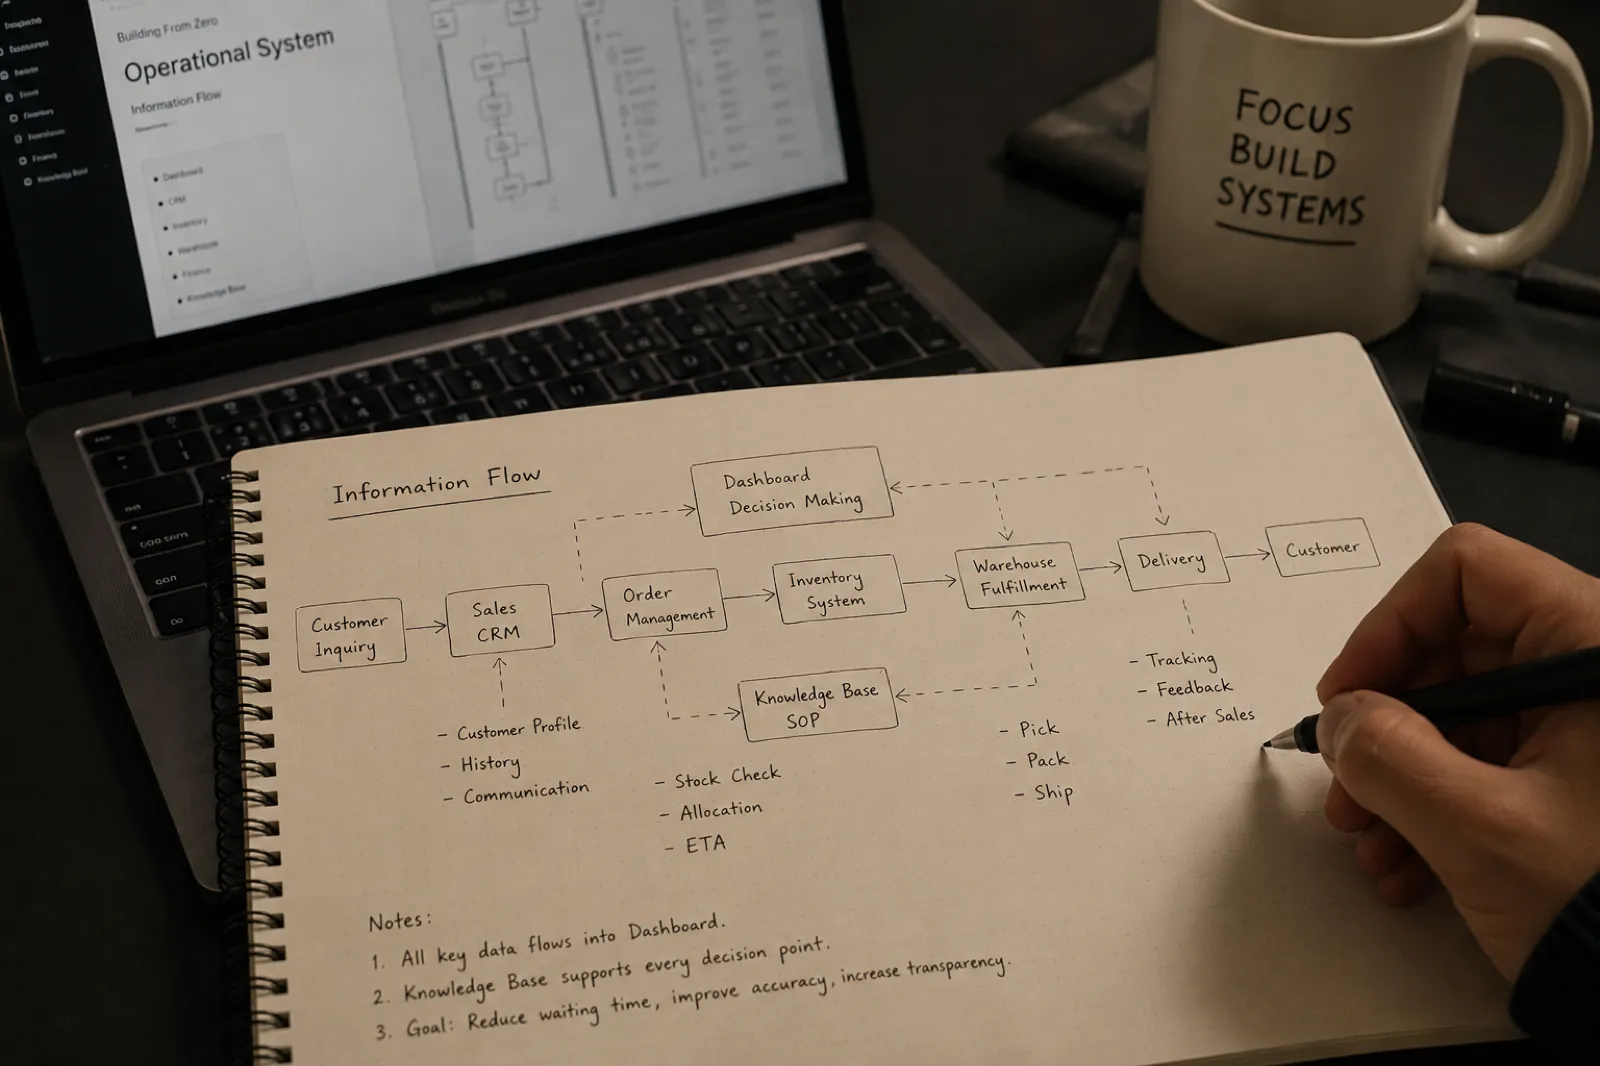 Building From Zero
Operational System
Information Flow
Knowledge Base
Dashboard
CRM
Inventory
Warehouse
Finance
Knowledge Base
FOCUS
BUILD
SYSTEMS
Information Flow
Dashboard
Decision Making
Customer
Inquiry
Sales
CRM
Order
Management
Inventory
System
Warehouse
Fulfillment
Delivery
Customer
Knowledge Base
SOP
- Customer Profile
- History
- Communication
- Stock Check
- Allocation
- ETA
- Pick
- Pack
- Ship
- Tracking
- Feedback
- After Sales
Notes:
1. All key data flows into Dashboard.
2. Knowledge Base supports every decision point.
3. Goal: Reduce waiting time, improve accuracy, increase transparency.